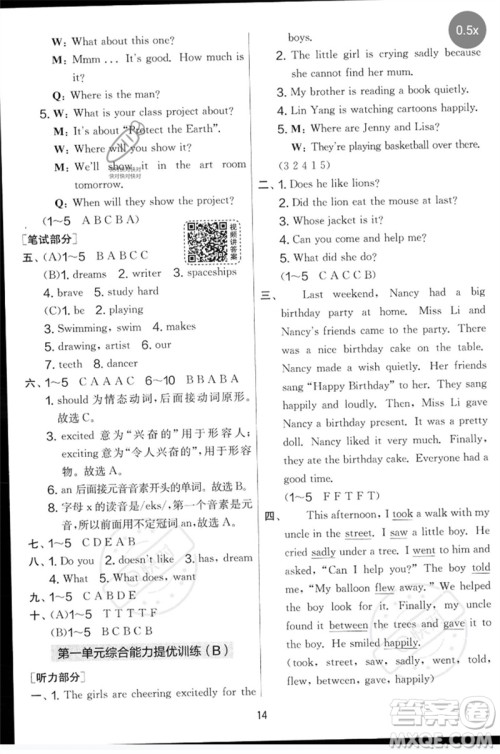 0.5x
W: What about this one?
M: Mmm ... It's good. How much is it?
Q: Where is the man?
5. W: What is your class project about?
M: It's about "Protect the Earth".
W: Where will you show it?
M: We'll show it in the art room
tomorrow.
Q: When will they show the project?
(1～5 ABCBA)
[笔试部分]
五、(A)1～5 BABCC
(B)1. dreams 2. writer 3. spaceships
4. brave 5. study hard
(C)1. be, playing
3. Swimming, swim, makes
5. drawing, artist 6. our
7. teeth 8. dancer
六、1～5 CAAAC 6～10 BBABA
1. should 为情态动词，后接动词原形。
故选 C。
2. excited 意为“兴奋的”用于形容人；
exciting 意为“令人兴奋的”用于形
容物。故选 A。
6. an 后接元音音素开头的单词。故选 B。
8. 字母 x 的发音是/eks/，第一个音素是元
音，因此其前的不定冠词用 an。故选 B。
七、1～5 CDEAB
八、1. Do you 2. doesn't like 3. dream
4. What 5. What does, want
九、1～5 CABDE
十、(A)1～5 TTTTF
(B)1～5 BCBCB
第一单元综合能力提优训练（B）
[听力部分]
一、1. The girls are cheering excitedly for the
boys.
2. The little girl is crying sadly because
she cannot find her mum.
3. My brother is reading a book quietly.
4. Lin Yang is watching cartoons happily.
5. M: Where are Jenny and Lisa?
W: They're playing basketball over there.
(3 2 4 1 5)
二、1. Does he like lions?
2. Did the lion eat the mouse at last?
3. Whose jacket is it?
4. Can you help me?
5. What did she do?
(1～5 CACCB)
三、 Last weekend, Nancy had a big
birthday party at home. Miss Li and
Nancy's friends came to the party. There
was a nice birthday cake on the table.
Nancy made a birthday wish. Her friends
sang "Happy Birthday" to Nancy. They
had some fun together. Miss Li gave
Nancy a birthday present. It was a pretty
doll. Nancy liked it very much. Then they
ate the birthday cake. Everyone had a
good time.
(1～5 FFTFT)
四、 This afternoon, I took a walk with my
uncle in the street. I saw a little boy. He
cried sadly. I went to him and asked,
"Can I help you?" The boy told me,
"My balloon flew away." My uncle
bought another balloon and gave it to
the boy. He smiled happily.
(took, street, saw, sadly, went, told,
flew, bought, another, gave, happily)
14
视频讲答案
快对快对
答案圈
MXQE.COM